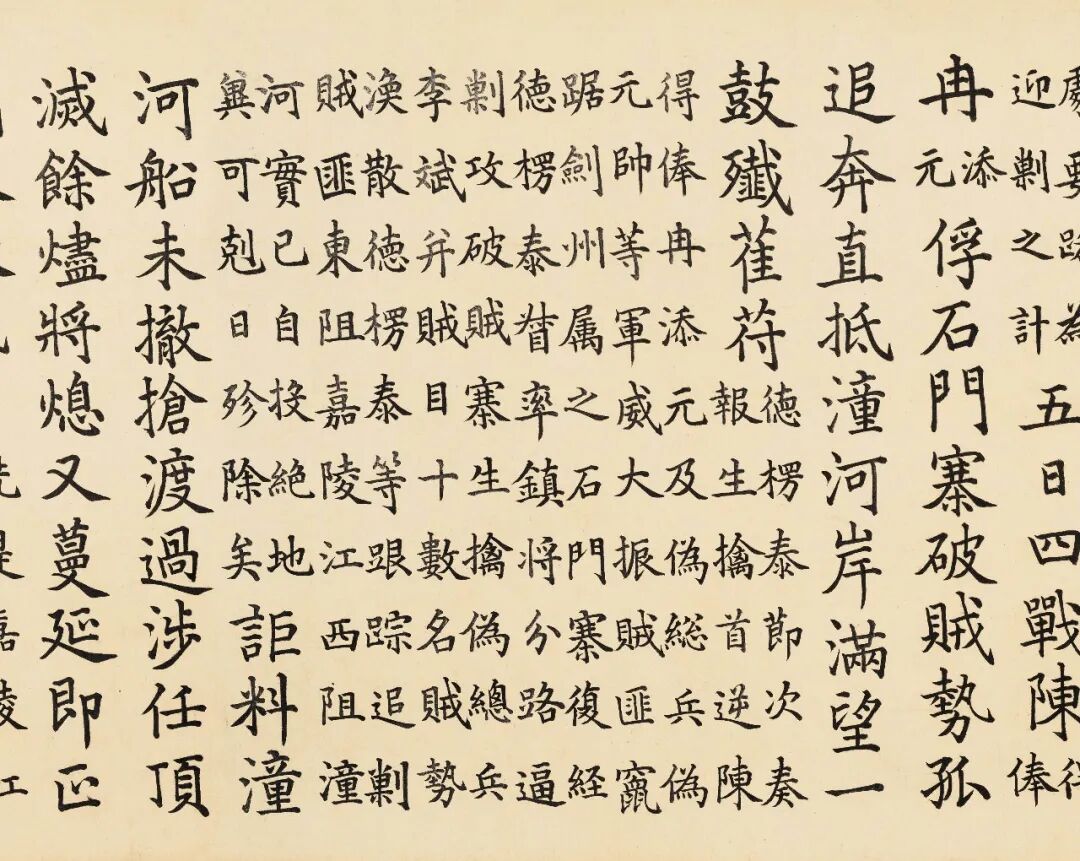 要為
迎剿之計
五日四戰陳得俸
冉添元俘石門寨破賊勢孤
追奔直抵潼河岸滿望一
鼓殲萑苻
德楞泰節次奏
報生擒首逆陳
得俸冉添元及偽総兵偽
元帥等軍威大振賊匪竄
踞劍州属之石門寨復経
德楞泰督率鎮将分路逼
剿攻破賊寨生擒偽總兵
李斌并賊目十數名賊勢
渙散德楞泰等跟踪追剿
賊匪東阻嘉陵江西阻潼
河實已自投絕地
冀可剋日殄除矣
詎料潼
河船未撤搶渡過涉任頂
滅餘燼將熄又蔓延即正
嘉陵江